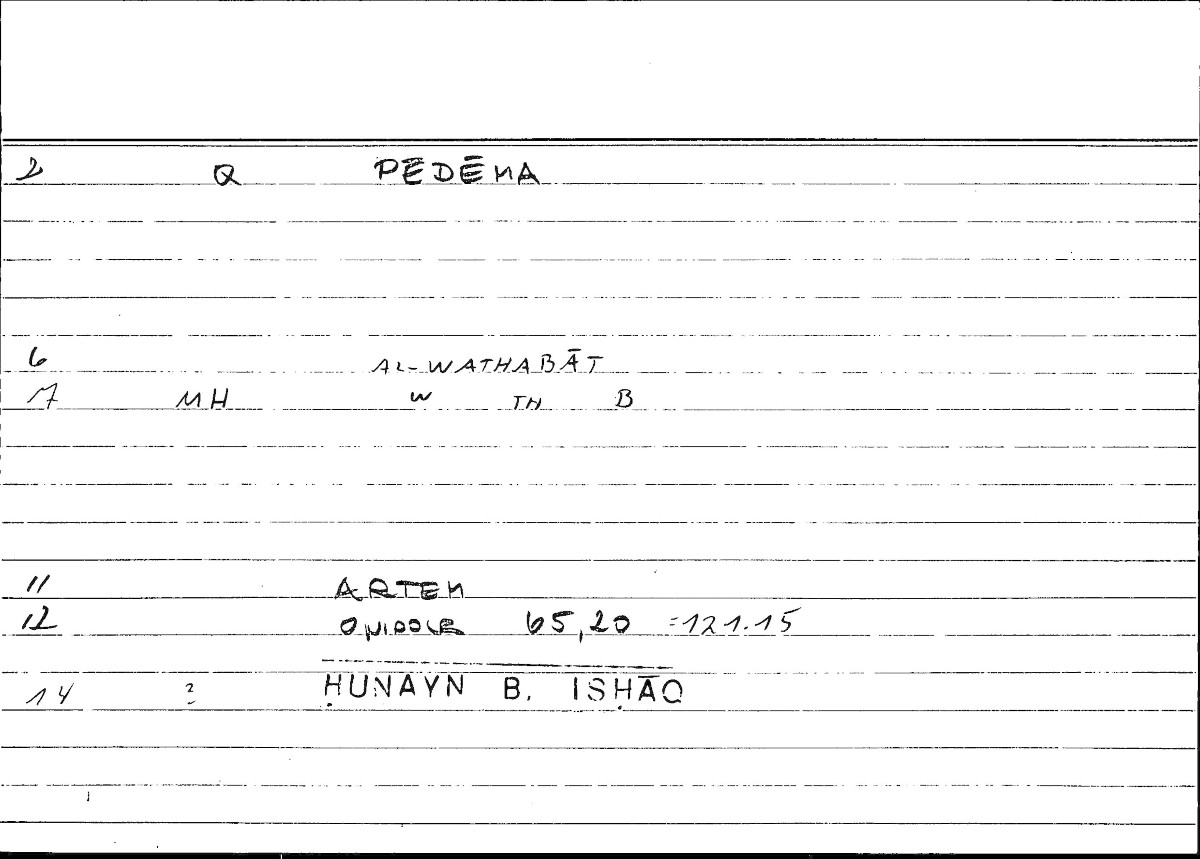 2 Q PĒDĒMA
6 AL-WATHABĀT
7 MH W TH B
11 ARTEM
12 65,20 =121.15
14 ? ḤUNAYN B. ISḤĀQ